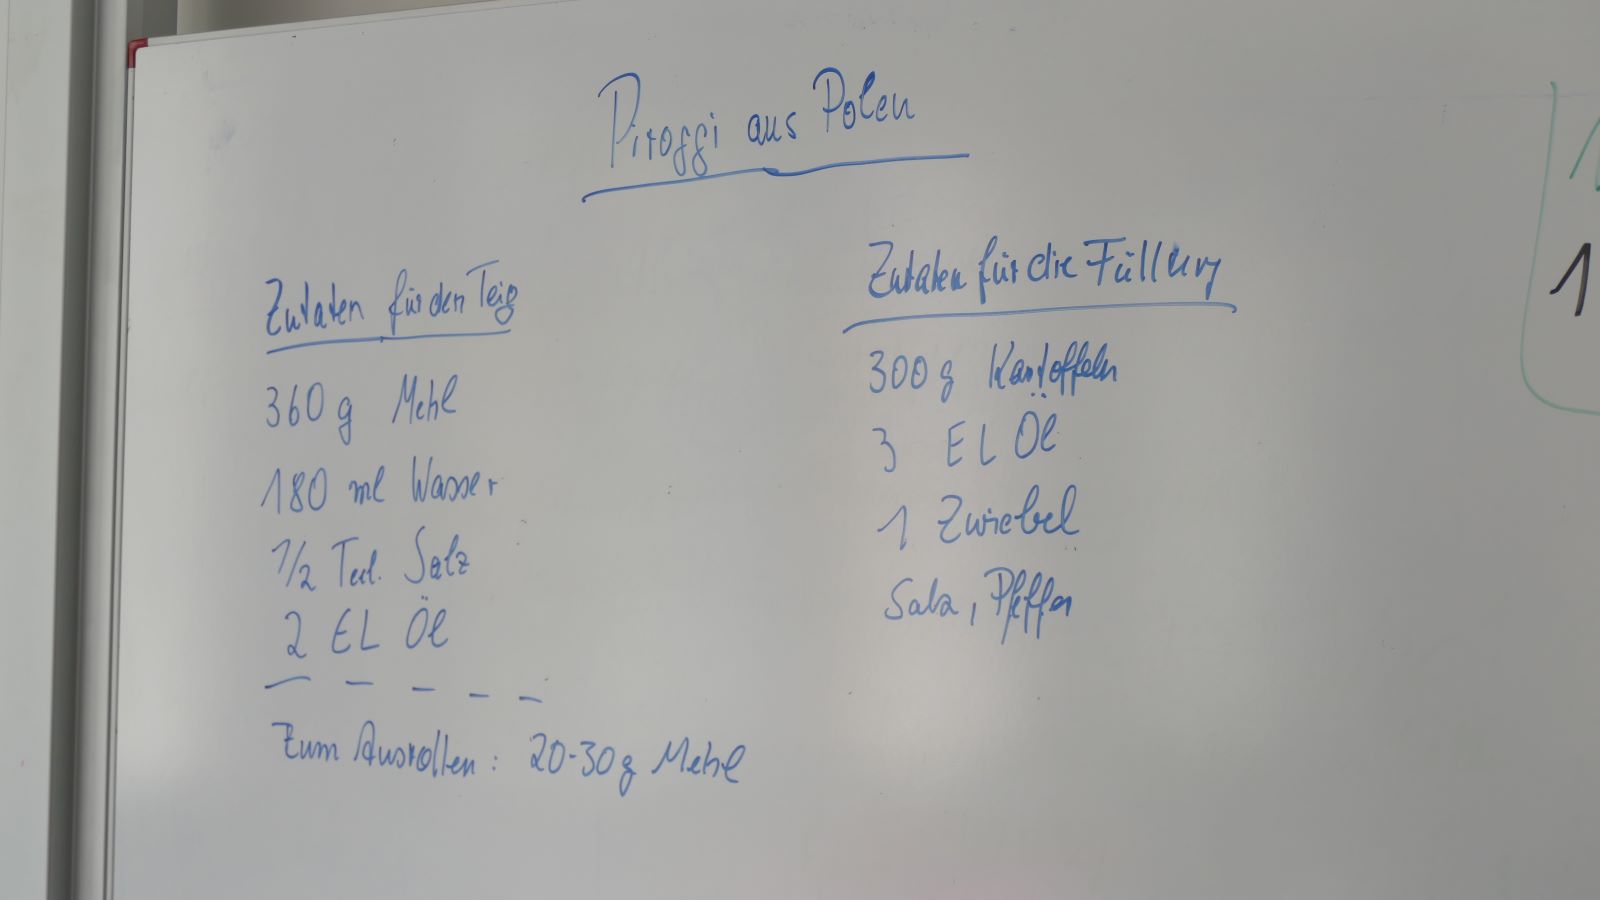 Piroggi aus Polen
Zutaten für den Teig
360 g Mehl
180 ml Wasser
1/2 Teel. Salz
2 EL Öl
Zum Ausrollen: 20-30 g Mehl
Zutaten für die Füllung
300 g Kartoffeln
3 EL Öl
1 Zwiebel
Salz, Pfeffer
1